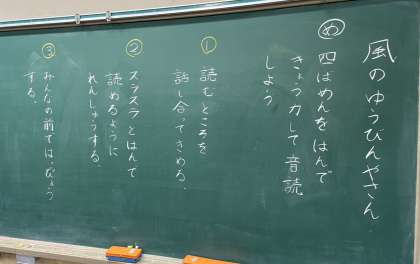 風のゆうびんやさん
め 四ばめんをはんで
きょう力して音読
しよう
① 読むところを
話し合ってきめる。
② スラスラとはんで
読めるように
れんしゅうする
③ みんなの前ではっぴょう
する。